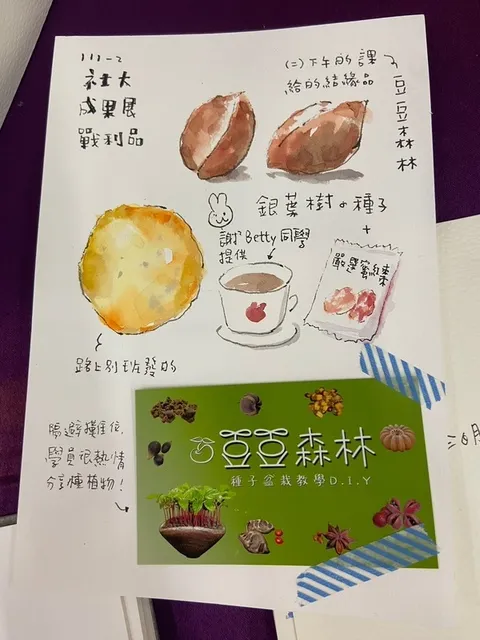 111-2
社大
成果展
戰利品
(二)下午的課
給的結緣品
豆豆森林
銀葉樹の種子
+
謝Betty同學
提供
嚴選蜜紅棗
路上別班發的
隔避攤位,
學員很熱情
分享種植物!
豆豆森林
種子盆栽教學D.I.Y